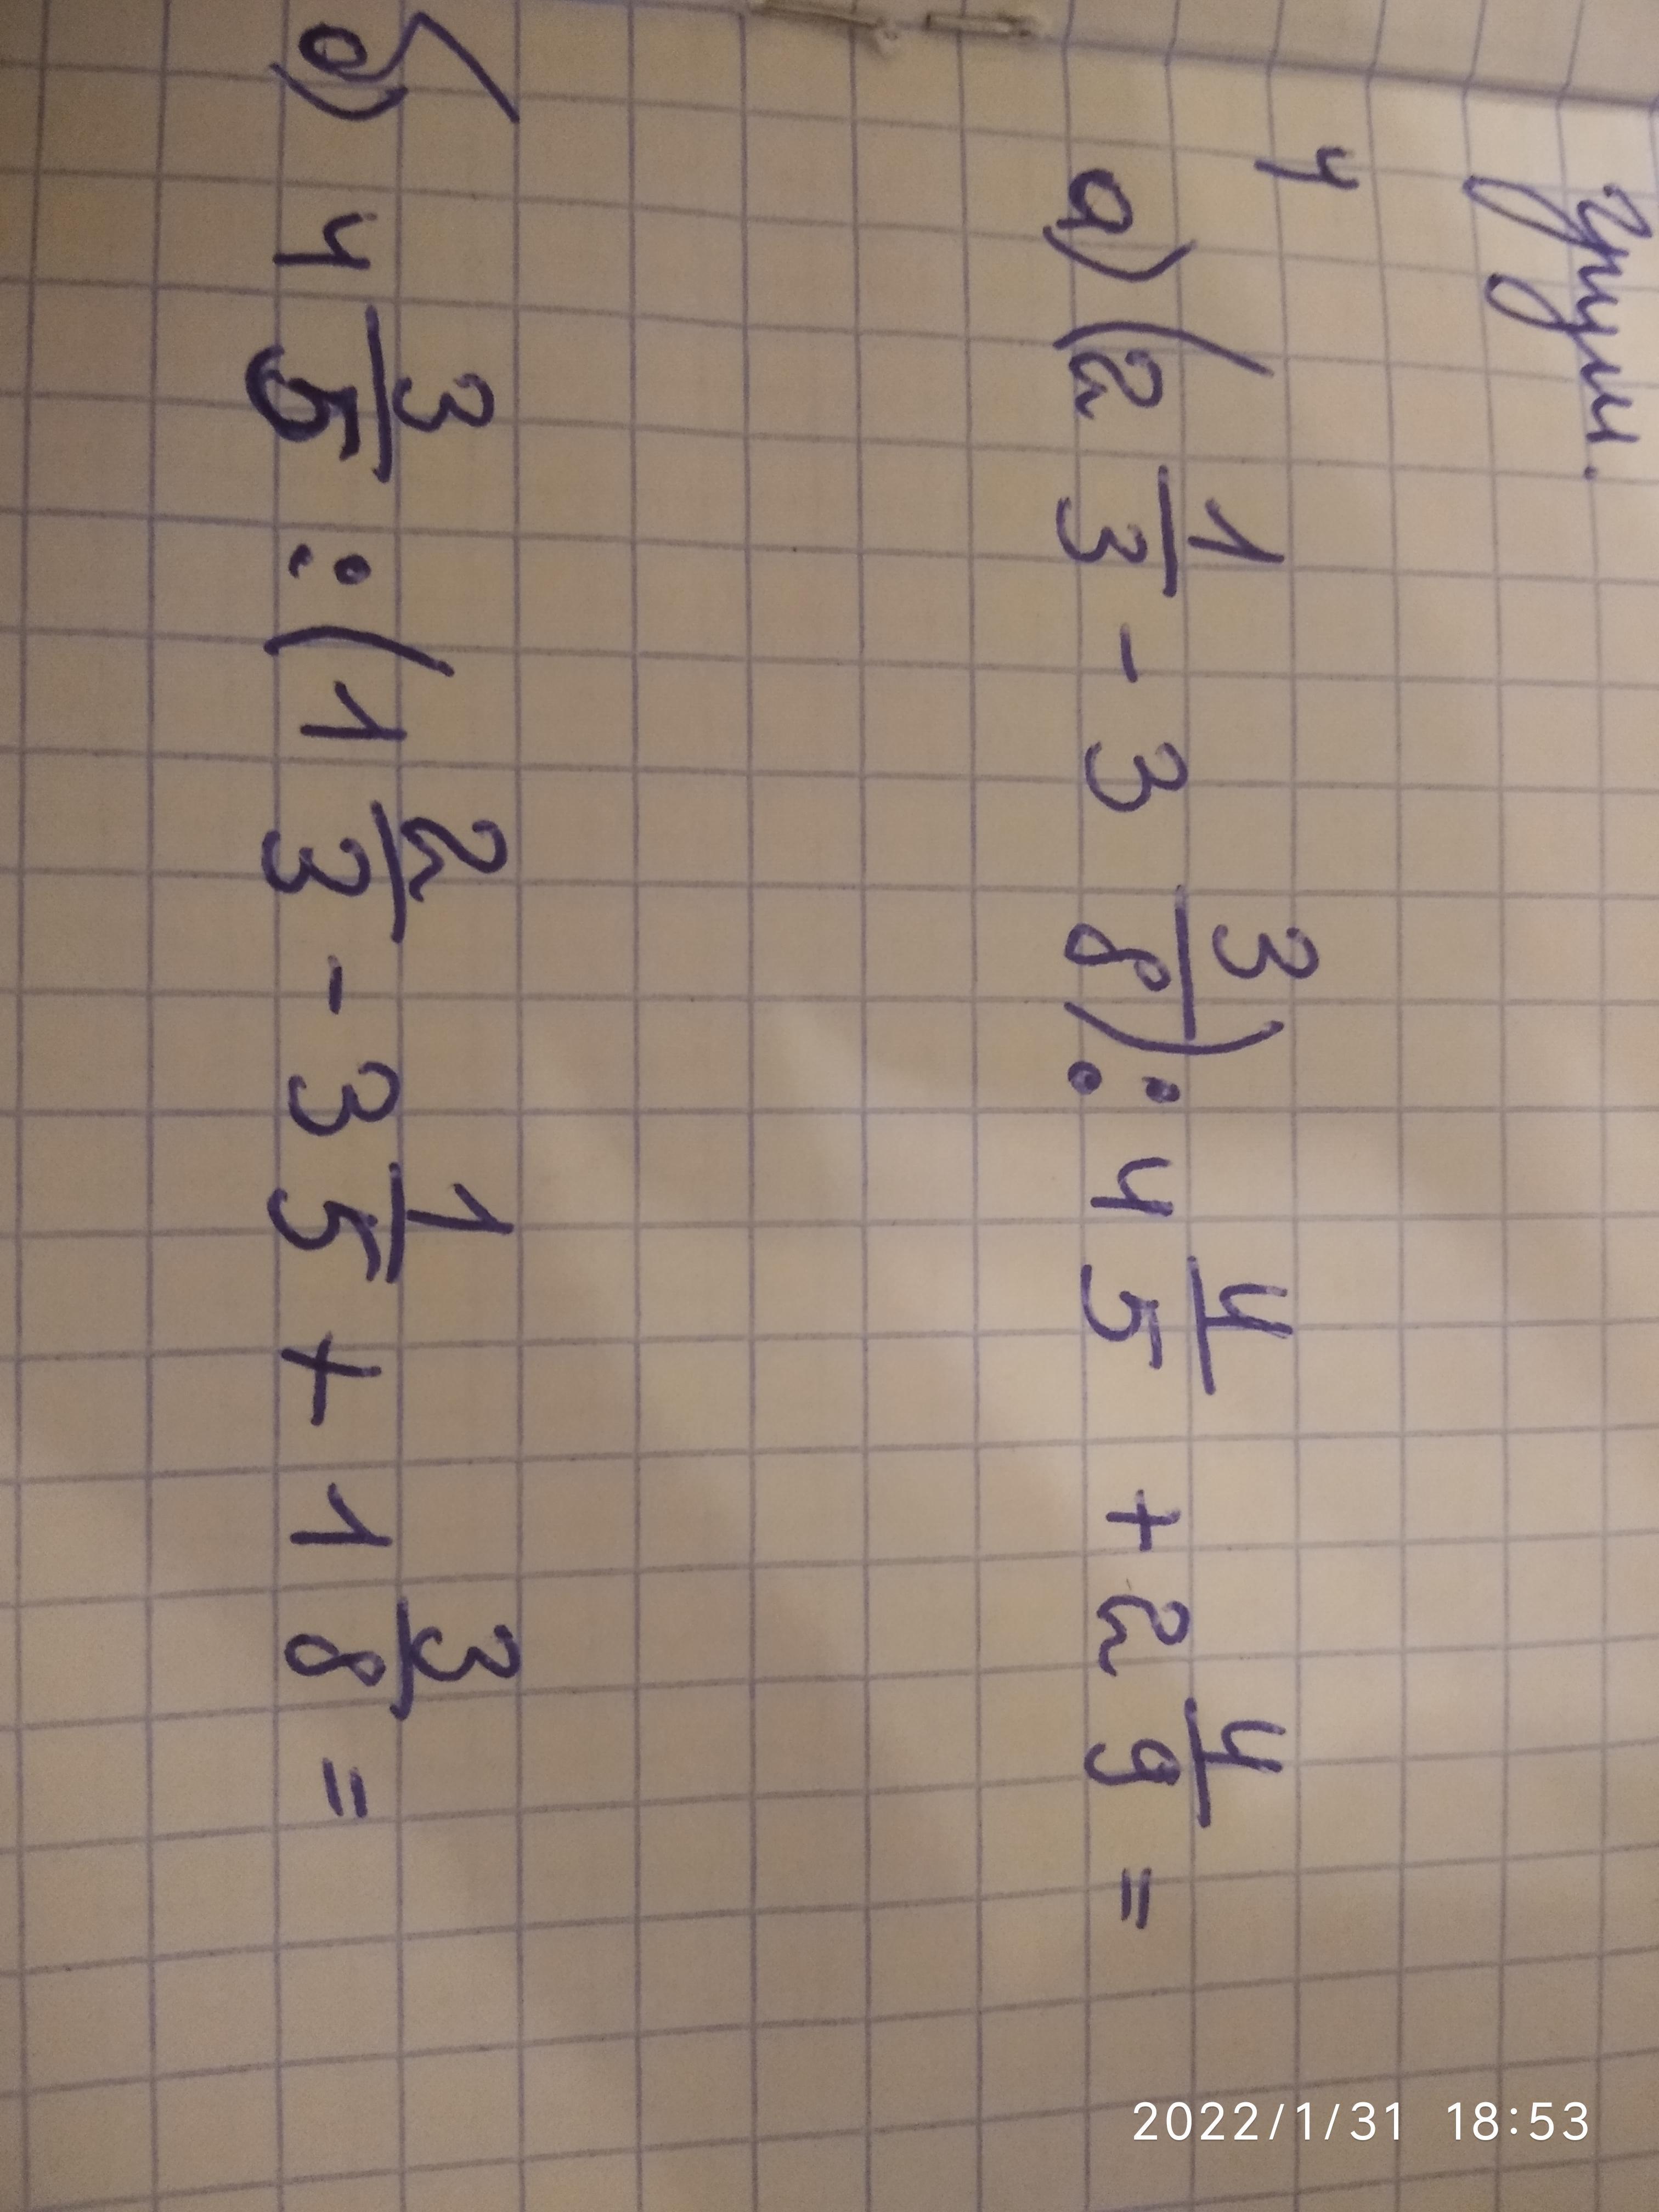 4
а) (2 1/3 - 3 3/8) : 4 4/5 + 2 4/9 =
б) 4 3/5 : (1 2/3 - 3 1/5 + 1 3/8 =
2022/1/31 18:53